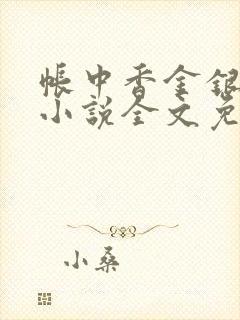 帳中香金銀
小說全文免
小桑